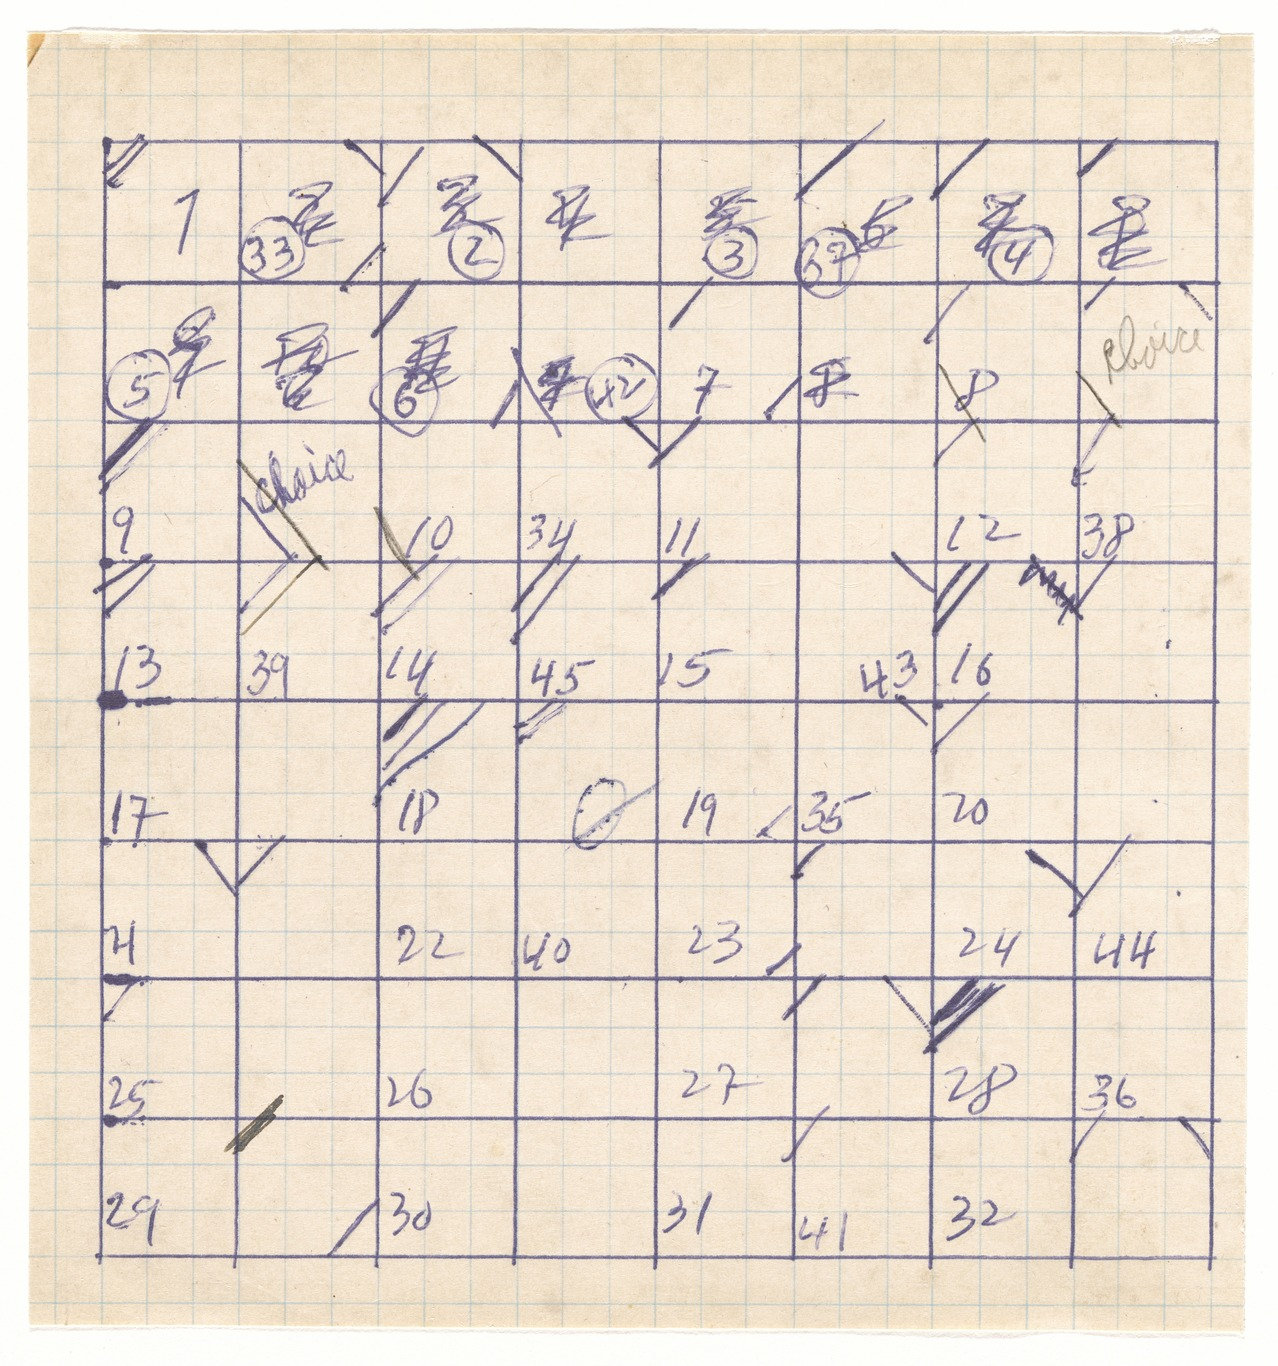 1 33 2 3 37 4
choice
5 6 42 7 8
choice
9 10 34 11 12 38
13 39 14 45 15 43 16
17 18 19 35 20
21 22 40 23 24 44
25 26 27 28 36
29 30 31 41 32